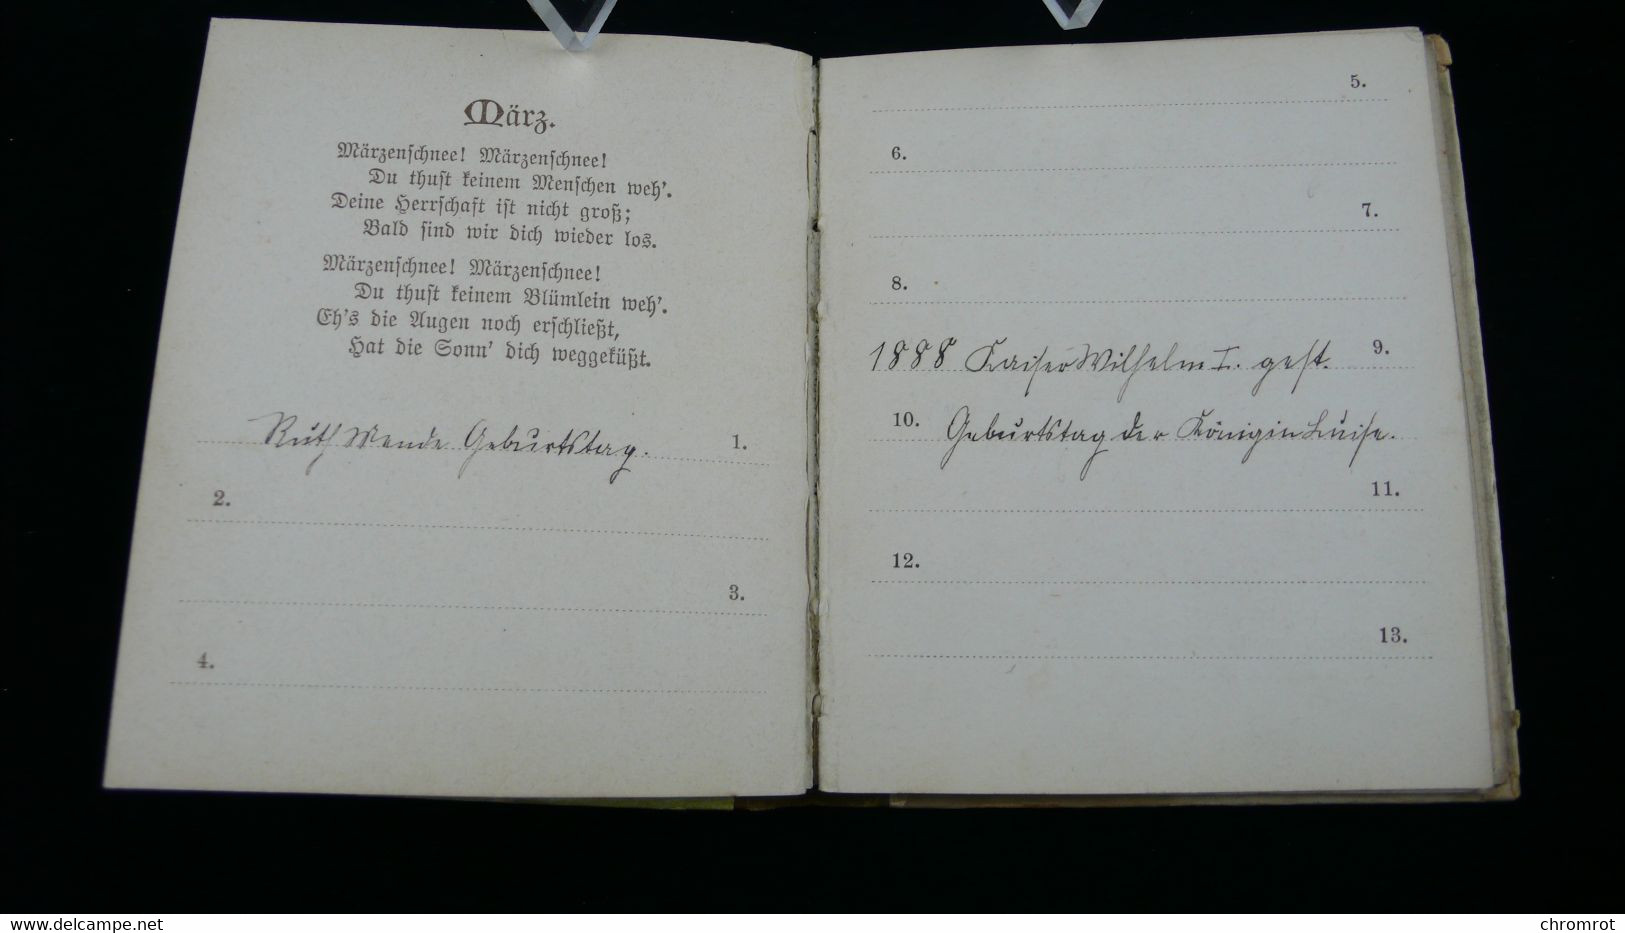 März.
Märzenschnee! Märzenschnee!
Du thust keinem Menschen weh'.
Deine Herrschaft ist nicht groß;
Bald sind wir dich wieder los.
Märzenschnee! Märzenschnee!
Du thust keinem Blümlein weh'.
Eh's die Augen noch erschließt,
Hat die Sonn' dich weggeküßt.
Ruth Mende Geburtstag. 1.
2.
3.
4.
5.
6.
7.
8.
1888 Kaiser Wilhelm I. gest. 9.
10. Geburtstag der Königin Luise.
11.
12.
13.
www.delcampe.net
chromrot